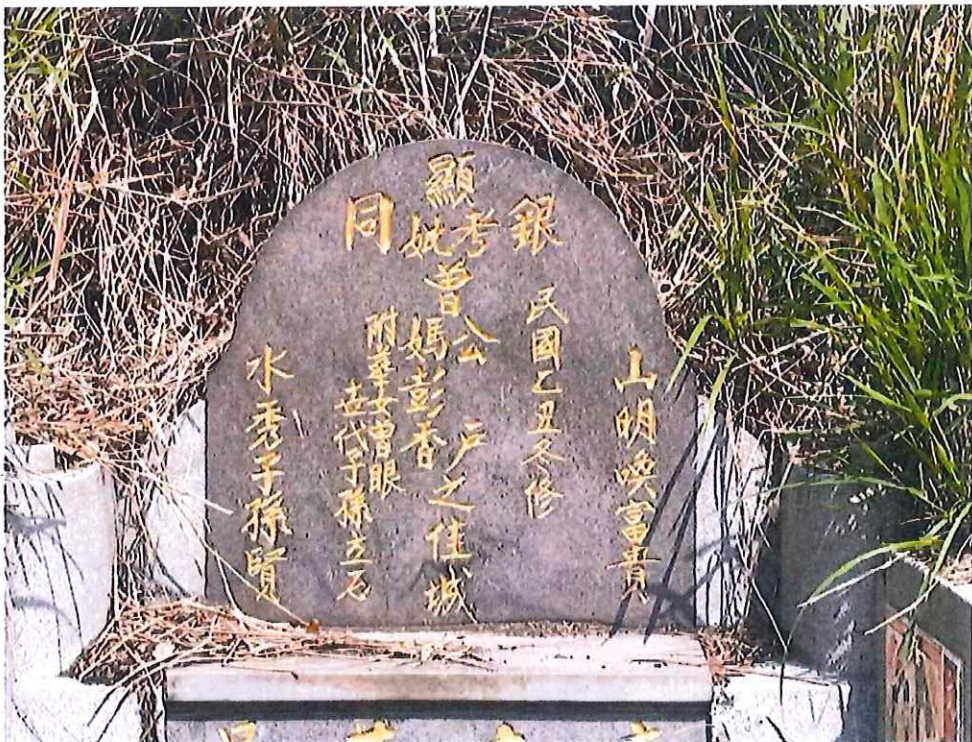 銀同
山明喚富貴
民國乙丑冬修
顯考妣曾公媽戶彭香之佳城
附葬女曾眼
世代子孫立石
水秀子孫賢